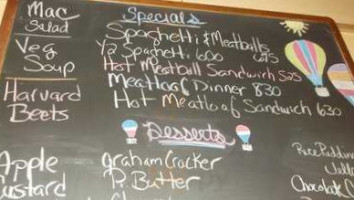 Mac
Salad
Veg
Soup
Harvard
Beets
Specials
Spaghetti & Meatballs
1/2 Spaghetti 600 675
Hot Meatball Sandwich 525
Meatloaf Dinner 830
Hot Meatloaf Sandwich 630
Desserts
Apple
Custard
Graham Cracker
P. Butter
Rice Pudding
Chocolate